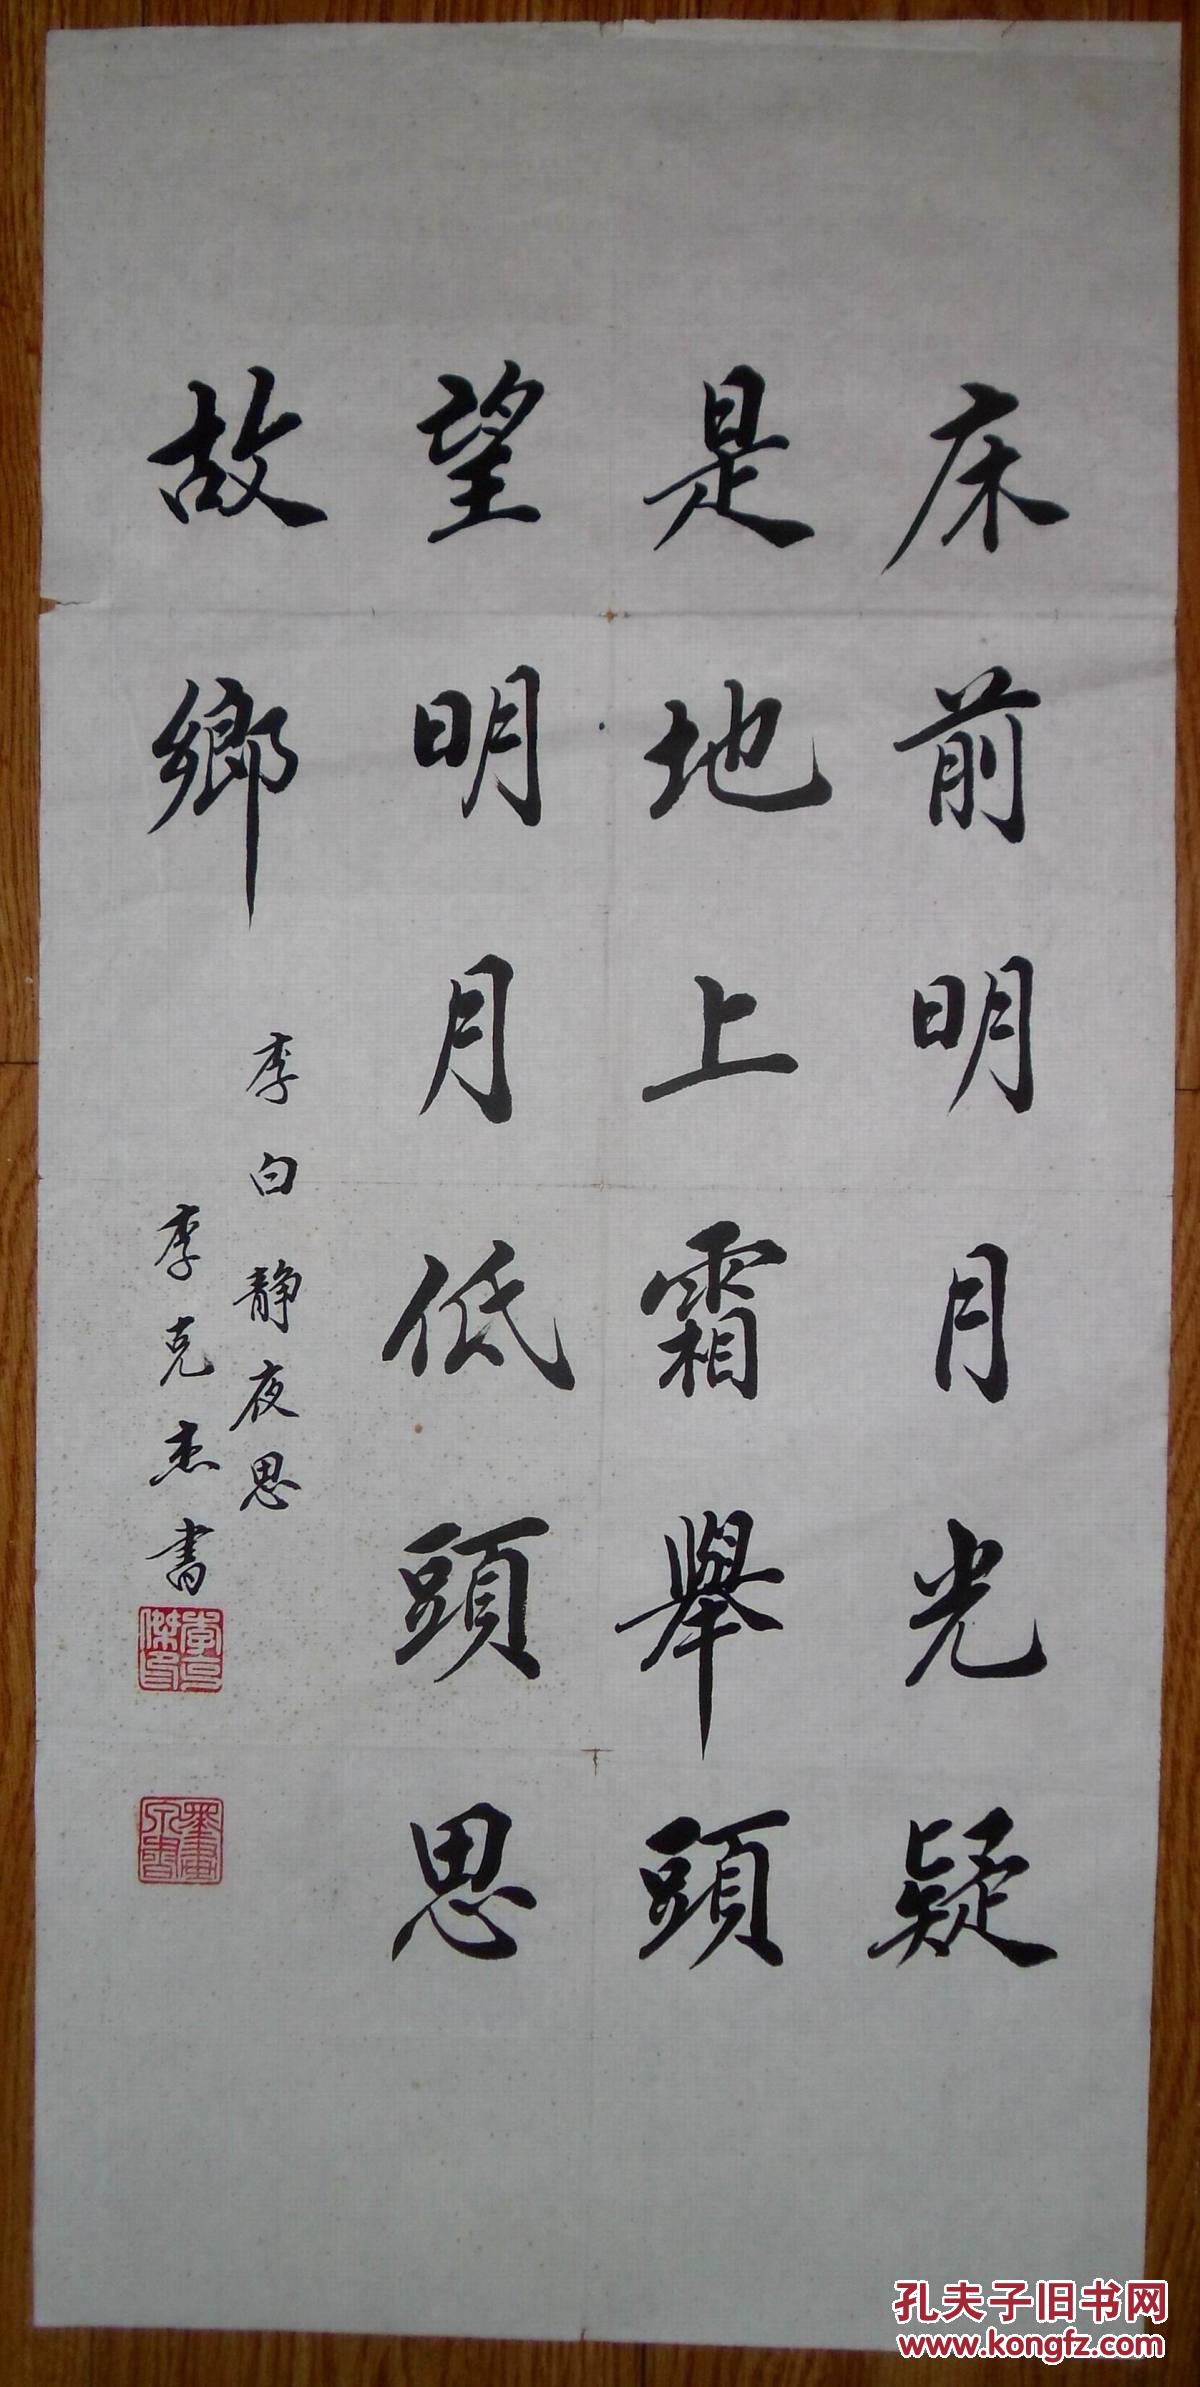 床前明月光疑
是地上霜舉頭
望明月低頭思
故鄉
李白靜夜思
李克杰書
孔夫子旧书网
www.kongfz.com